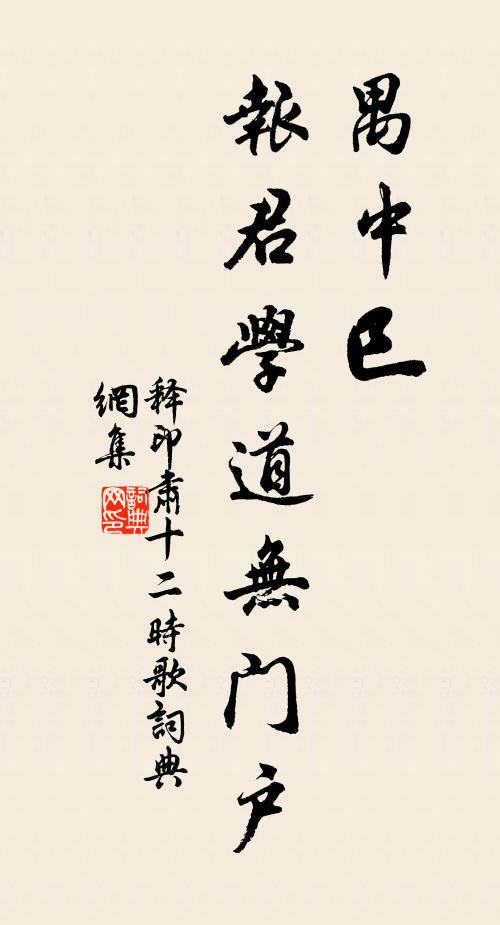 禺中巳
報君學道無門户
釋印肅十二時歌詞典
網集
詞典網印